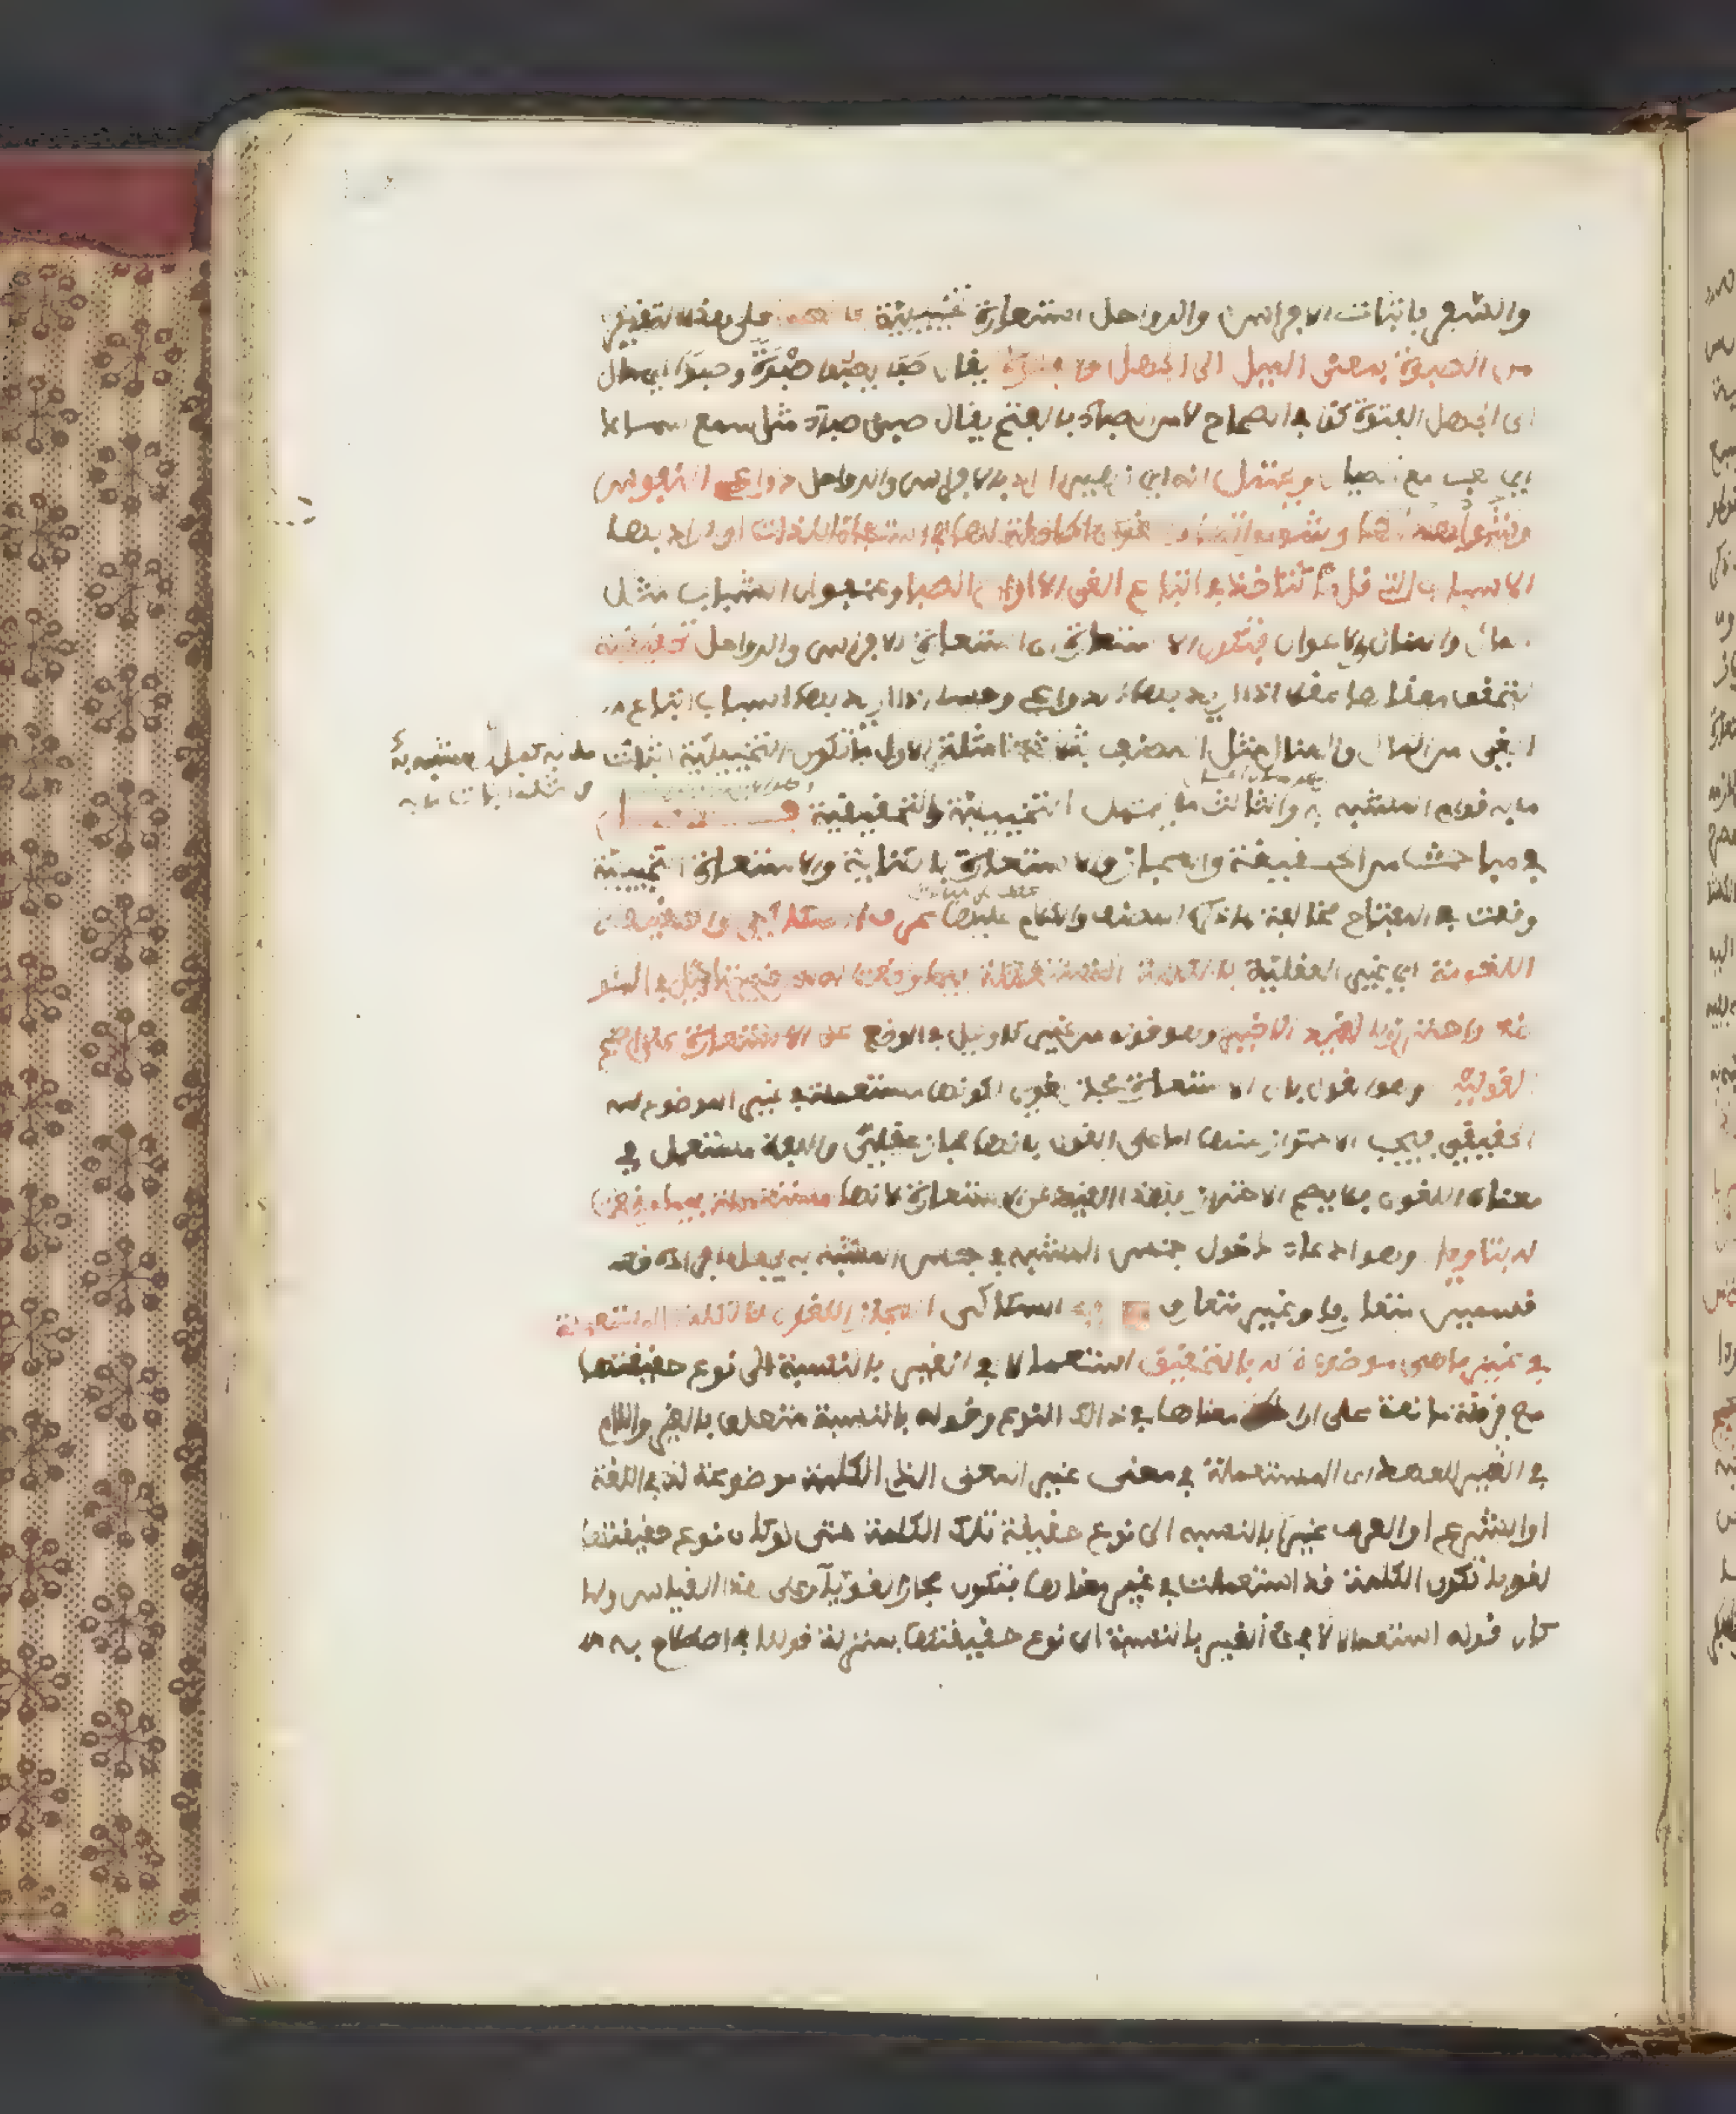 والشعر باثبات الافراس والرواحل استعارة تخييلية فالصبا على هذا التقدير
من الصبوة بمعنى الميل الى الجهل والفتوة يقال صَبَا يصبو صَبْوَةً وصبوا اي مال
الى الجهل والفتوة كذا في الصحاح لا من الصباء بالفتح يقال صبى صباء مثل سمع سماعا
اي لعب مع الصبيان ويحتمل انه اي زهير اراد بالافراس والرواحل دواعي النفوس
وشهواتها والقوى الحاصلة لها في استيفاء اللذات او اراد بها
الاسباب التي قل ما تتآخذ في اتباع الغي الا اوان الصبا وعنفوان الشباب مثل
المال والمنال والاعوان فتكون الاستعارة اي استعارة الافراس والرواحل تحقيقية
لتحقق معناها عقلا اذا اريد بها الدواعي وحسا اذا اريد بها اسباب اتباع
الغي من المال والمنال مثل المصنف بثلاثة امثلة الاول ما تكون التخييلية اثبات ما به كمال المشبه به
والثاني ما تكون اثبات ما به
ما به قوام المشبه به والثالث ما يحتمل التخييلية والتحقيقية فصل
في مباحث من الحقيقة والمجاز والاستعارة بالكناية والاستعارة التخييلية
وقعت في المفتاح مخالفة لما ذكره المصنف والكلام عليها عرف السكاكي الحقيقة
اللغوية اي غير العقلية بالكلمة المستعملة فيما وضعت له من غير تاويل في الوضع
واحترز بالقيد الاخير وهو قوله من غير تاويل في الوضع عن الاستعارة على اصح
القولين وهو القول بان الاستعارة مجاز لغوي لكونها مستعملة في غير الموضوع له
الحقيقي فيجب الاحتراز عنها اما على القول بانها مجاز عقلي واللفظ مستعمل في
معناه اللغوي فلا يصح الاحتراز بهذا القيد عن الاستعارة لانها مستعملة فيما وضعت
له بتاويل وهو ادعاء دخول جنس المشبه في جنس المشبه به بجعل افراده
قسمين متعارفا وغير متعارف وعرف السكاكي المجاز اللغوي بالكلمة المستعملة
في غير ما هي موضوعة له بالتحقيق استعمالا في الغير بالنسبة الى نوع حقيقتها
مع قرينة مانعة على ارادة معناها في ذلك النوع وقوله بالنسبة متعلق بالغير واللام
في الغير للعهد اي المستعملة في معنى غير المعنى الذي الكلمة موضوعة له في اللغة
او الشرع او العرف غيرا بالنسبة الى نوع حقيقة تلك الكلمة حتى لو كان نوع حقيقتها
لغويا تكون الكلمة قد استعملت في غير معناها فتكون مجازا لغويا وعلى هذا القياس ولما
كان قوله استعمالا في الغير بالنسبة الى نوع حقيقتها بمنزلة قولنا في اصطلاح به